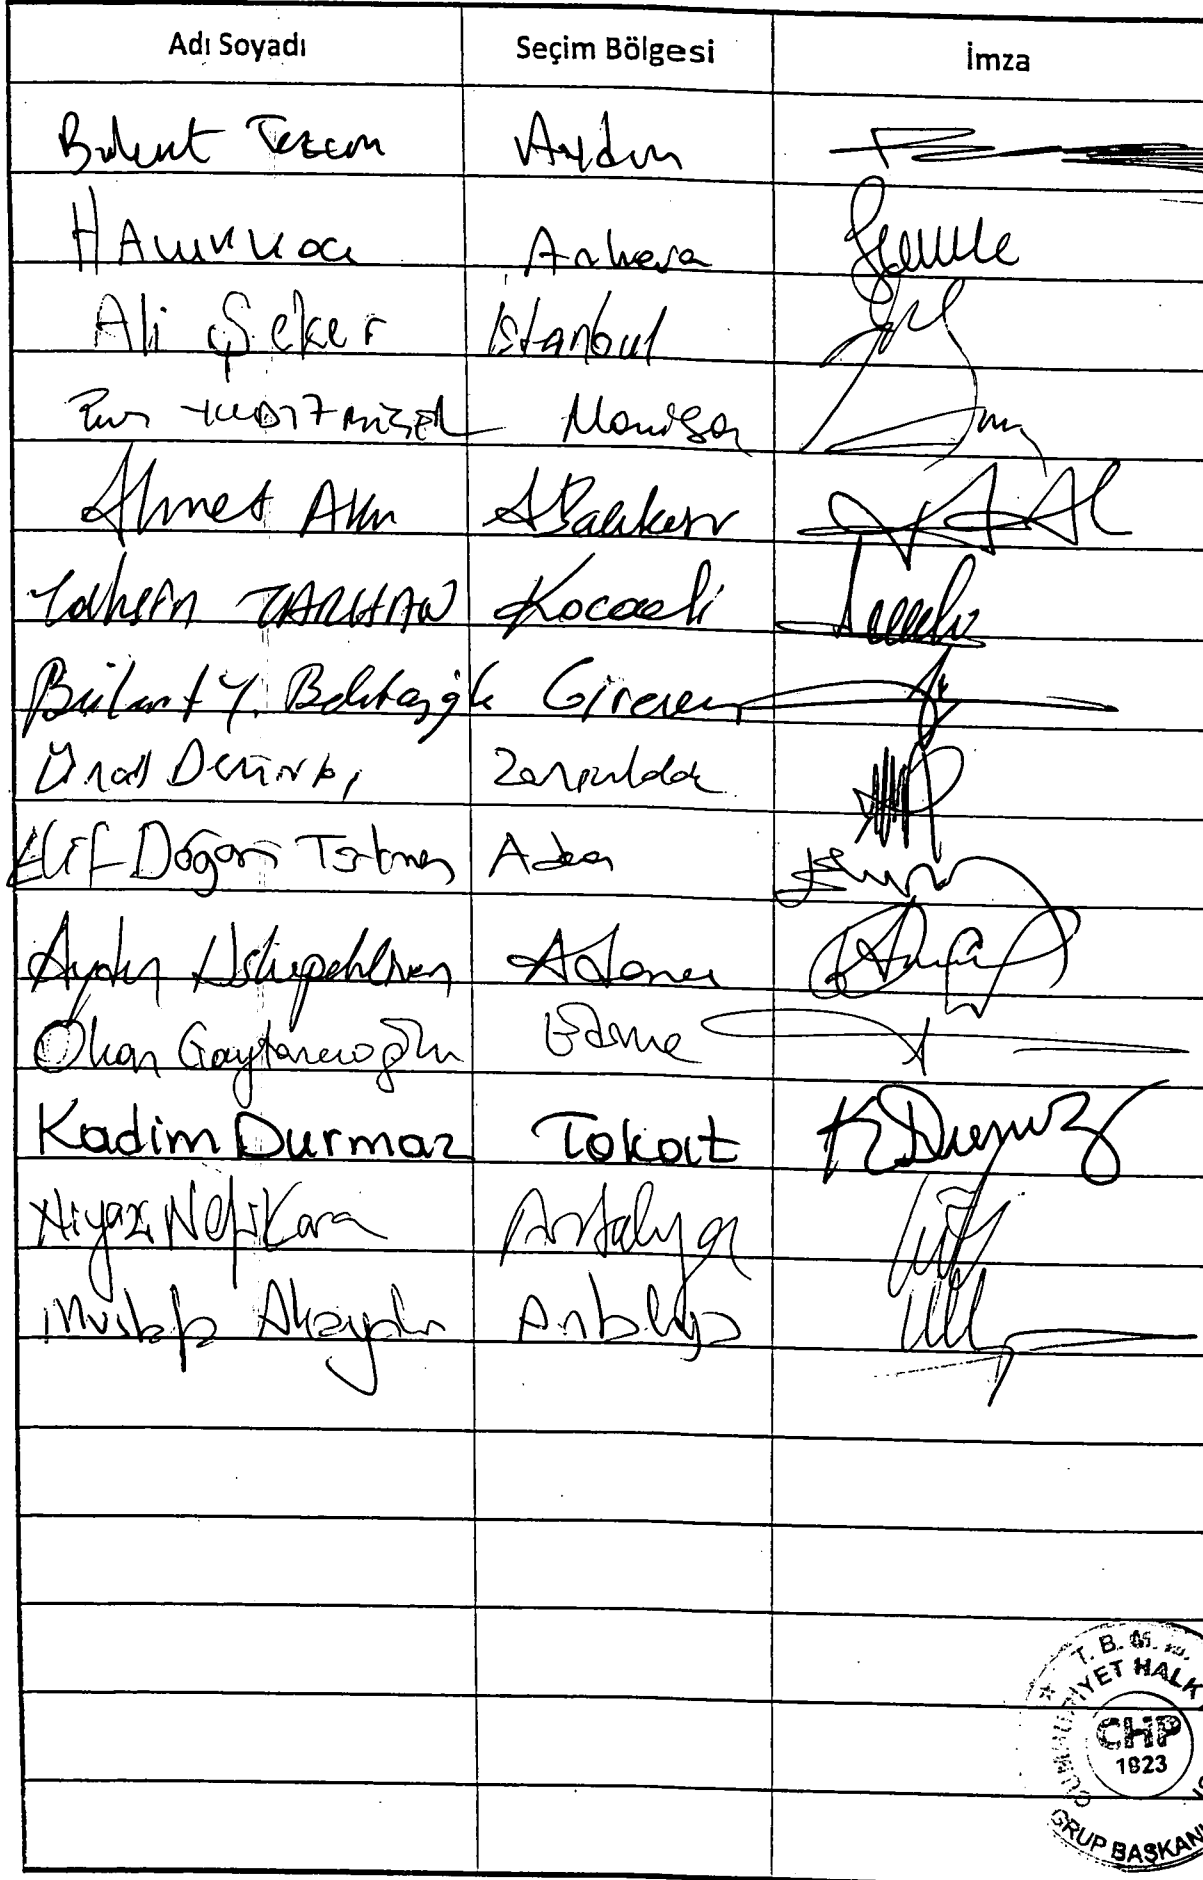 Adı Soyadı Seçim Bölgesi İmza
Bülent Tezcan Aydın
Haluk Koç Ankara
Ali Şeker İstanbul
Manisa
Ahmet Akın Balıkesir
Tahsin TARHAN Kocaeli
Bülent Y. Bektaşoğlu Giresun
Ünal Demirtaş Zonguldak
Elif Doğan Türkmen Adana
Aydın Uslupehlivan Adana
Okan Gaytancıoğlu Edirne
Kadim Durmaz Tokat K Durmaz
Niyazi Nefi Kara Antalya
Mustafa Akaydın Antalya
T. B. M. M.
CUMHURİYET HALK
CHP
1923
GRUP BAŞKANL